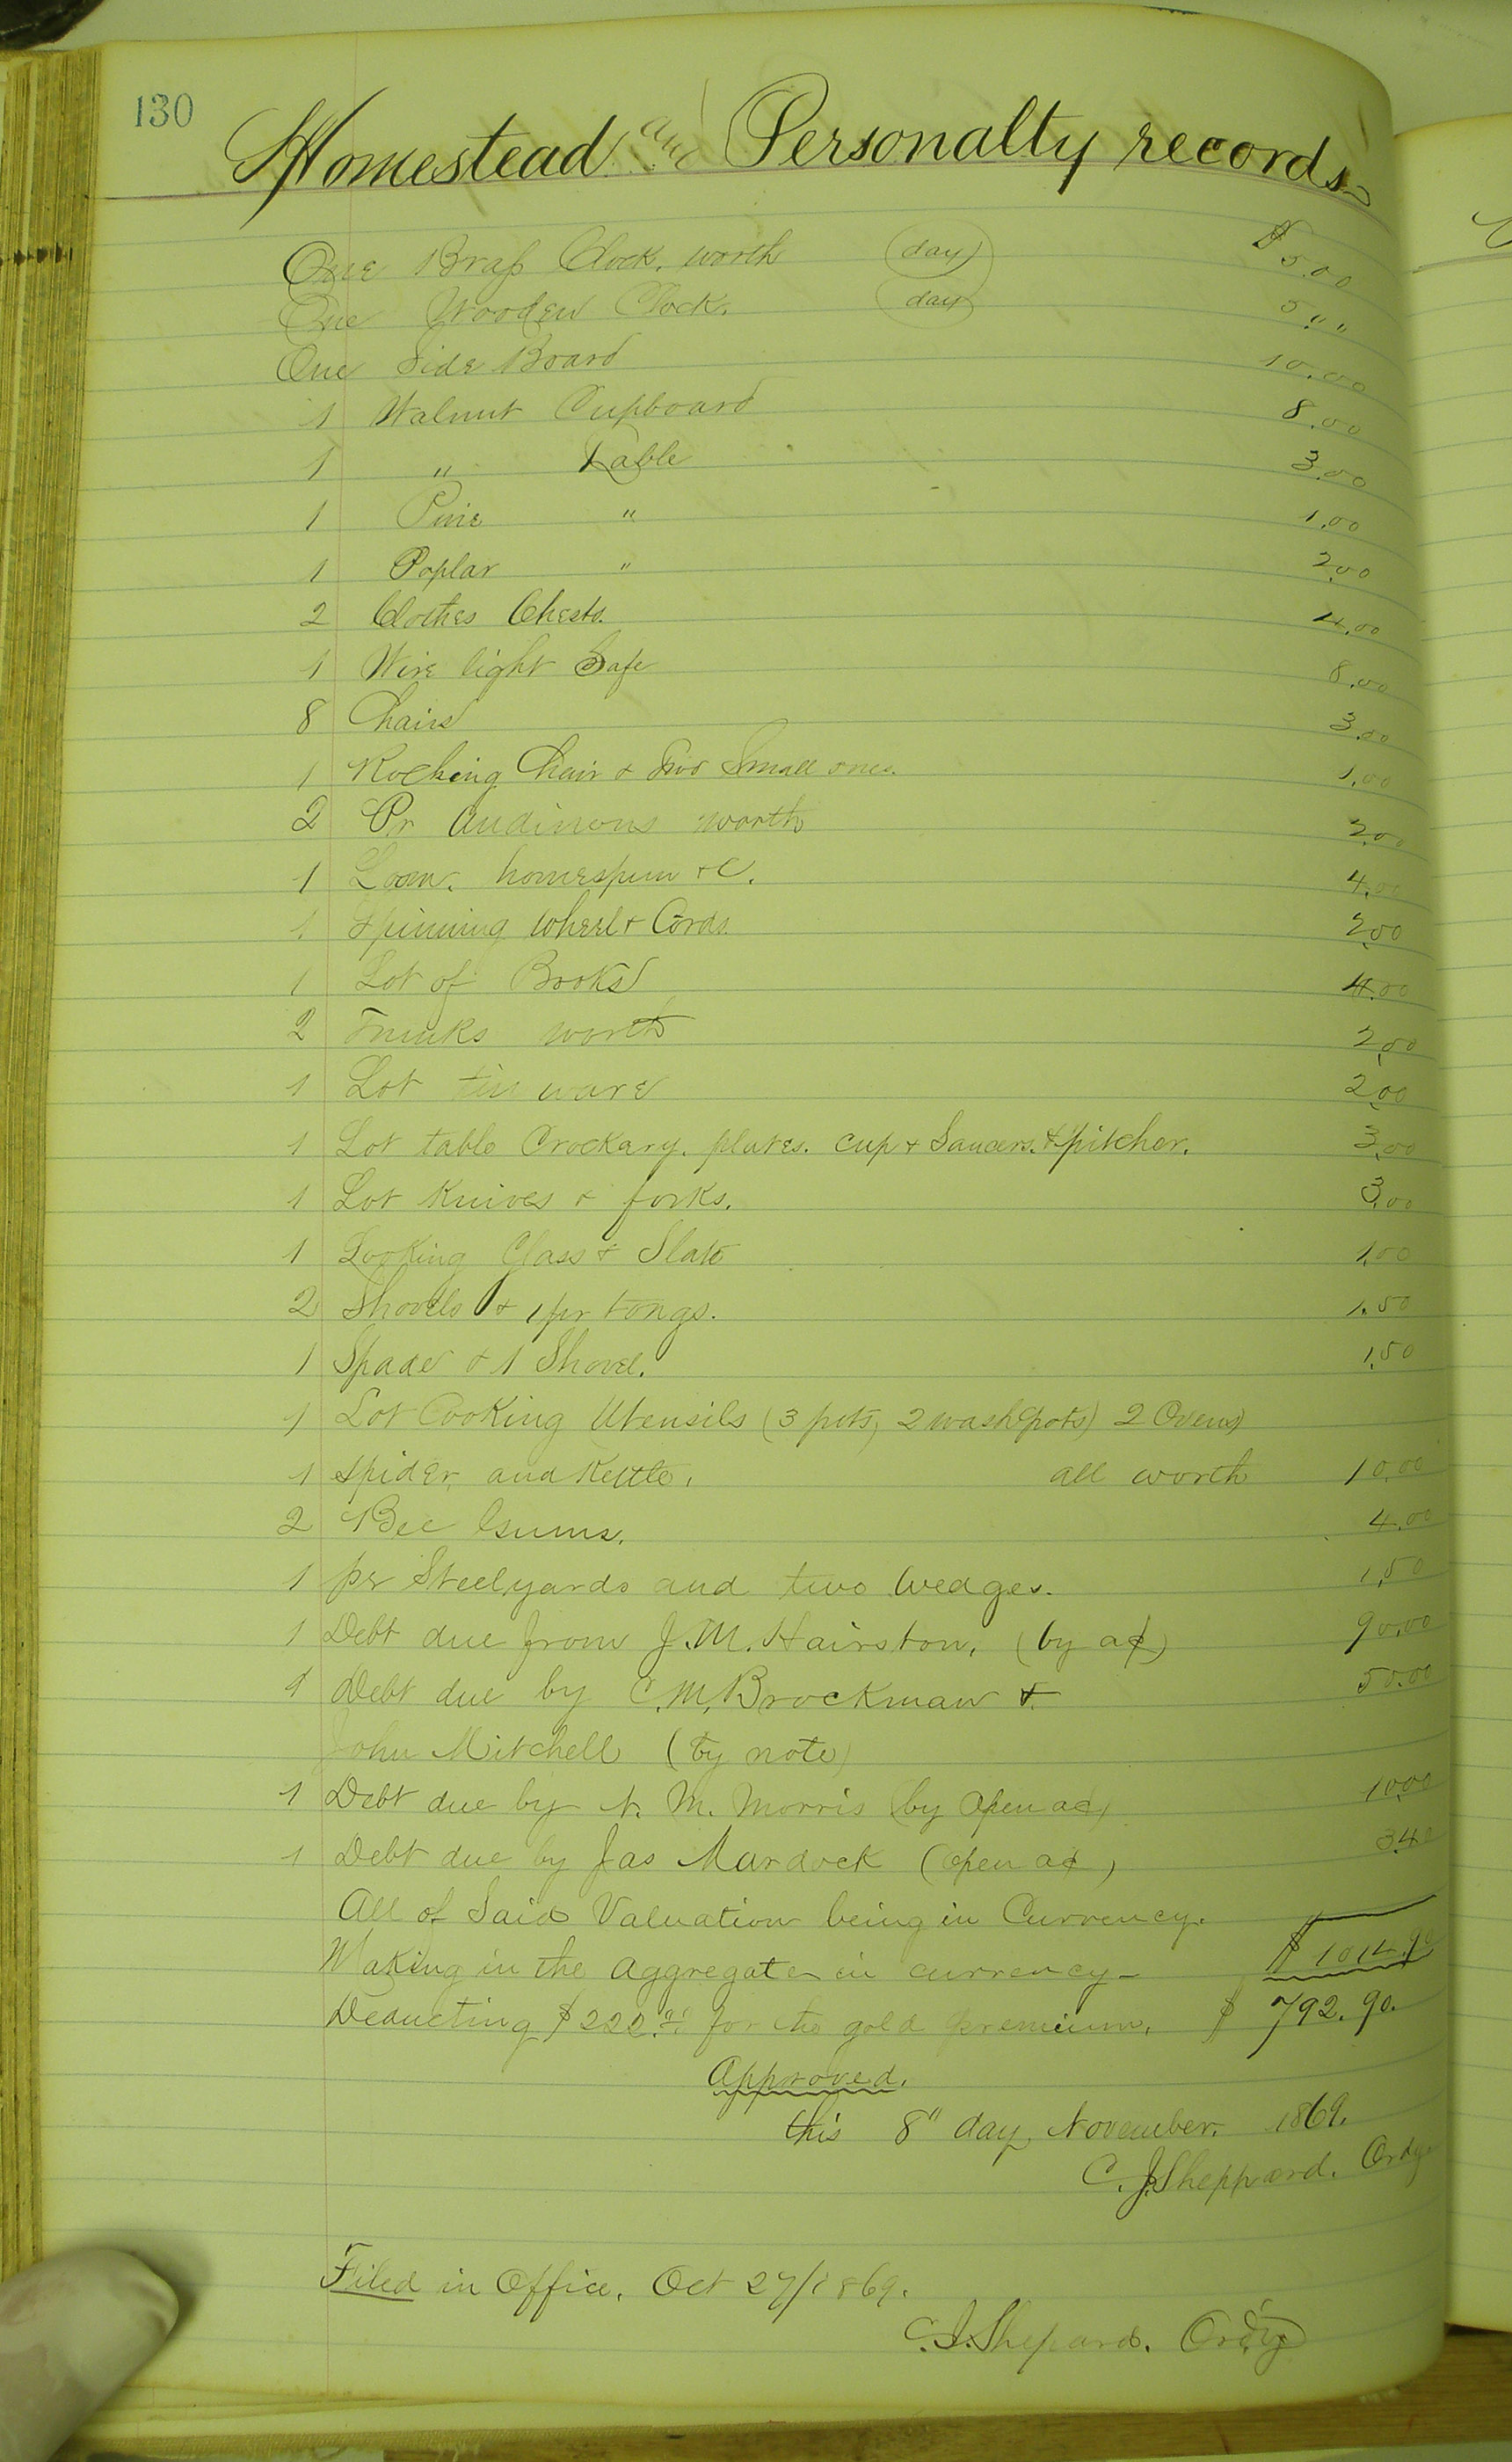 130
Homestead and Personalty records
One Brass Clock, worth (day) $5.00
One Wooden Clock. (day) 5 " "
One Side Board 10.00
1 Walnut Cupboard 8.00
1 " Table 3.00
1 Pine " 1.00
1 Poplar " 2.00
2 Clothes Chests. 4.00
1 Wire light Safe 8.00
8 Chairs 3.00
1 Rocking Chair & two Small ones. 1.00
2 Pr Andirons worth 2.00
1 Loom. homespun &C. 4.00
1 Spinning Wheel & Cords. 2.00
1 Lot of Books 4.00
2 Trunks worth 2.00
1 Lot tin ware 2.00
1 Lot table Crockary. plates. cup & Saucers. & pitcher. 3.00
1 Lot Knives & forks. 3.00
1 Looking Glass & Slate 1.00
2 Shovels & 1 pr tongs. 1.50
1 Spade & 1 Shovel. 1.50
1 Lot Cooking Utensils (3 pots, 2 wash pots) 2 Ovens
1 spider, and Kettle. all worth 10.00
2 Bee Gums. 4.00
1 pr Steelyards and two Wedges. 1.50
1 Debt due from J. M. Hairston. (by a¢) 90.00
1 Debt due by C. M. Brockman & 50.00
John Mitchell (by note)
1 Debt due by N. M. Morris (by Open a¢) 10.00
1 Debt due by Jas Mardock (open a¢) 3.40
All of Said Valuation being in Currency.
Making in the Aggregate in currency - $1014.90
Deducting $222.00 for the gold premium. $792.90.
Approved.
this 8" day November. 1869.
C. J. Sheppard. Ordy
Filed in Office. Oct 27/1869.
C. J. Shepard. Ordy